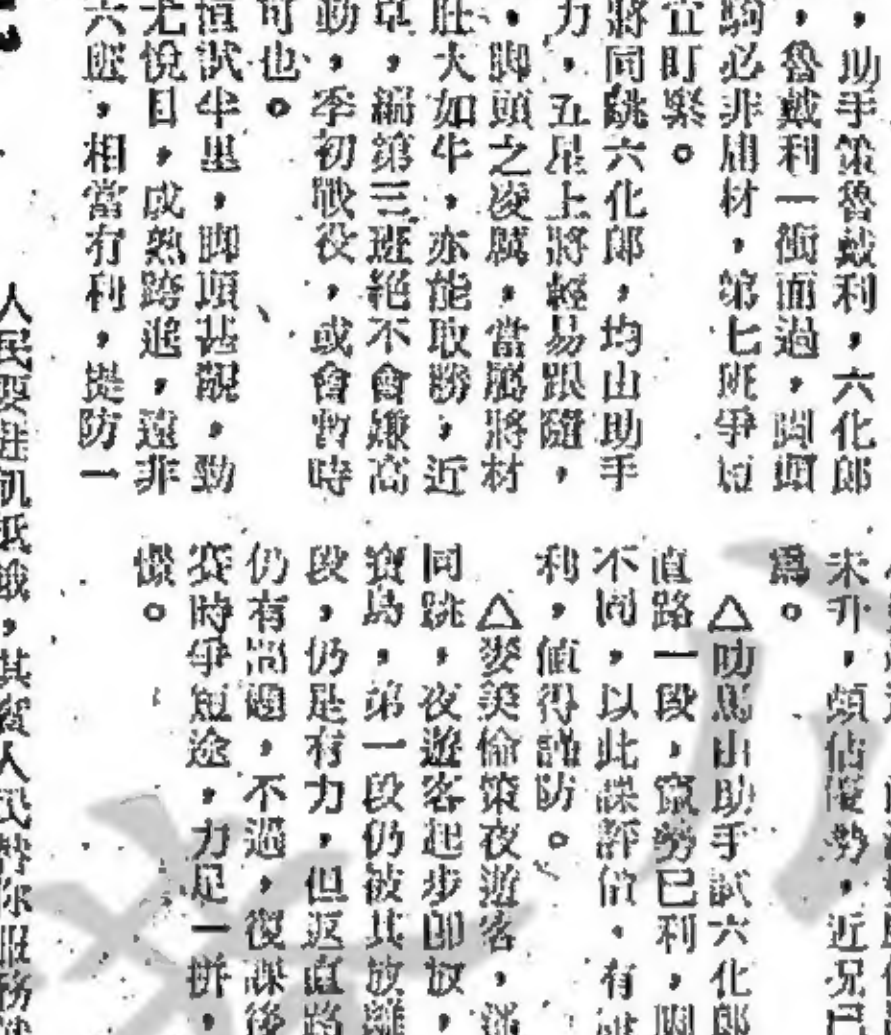 ，助手策魯戴利，六化郎
，魯戴利一衝而過，關頭
駒必非庸材，第七班爭短
宜盯緊。
將同跳六化郎，均由助手
力，五星上將輕易跟隨，
，脚頭之凌厲，當屬將材
肚大如牛，亦能取勝，近
卓，編第三班絕不會嫌高
勁，季初戰役，或會暫時
可也。
恒試半里，脚頭甚靚，勤
尤悅目，成熟跨進，遠非
六班，相當有利，提防一
未升，頗佔優勢，近況已
爲。
△叻馬山助手試六化郎
直路一段，竄勢已利，關
不同，以此課評價，有
利，值得謹防。
△麥美倫策夜遊客，
同跳，夜遊客起步即放，
寶島，第一段仍被其放離
段，仍是有力，但返直路
仍有問題，不過，復課後
賽時爭短途，力足一拼，
據。
人民要進，其實人民替你服務